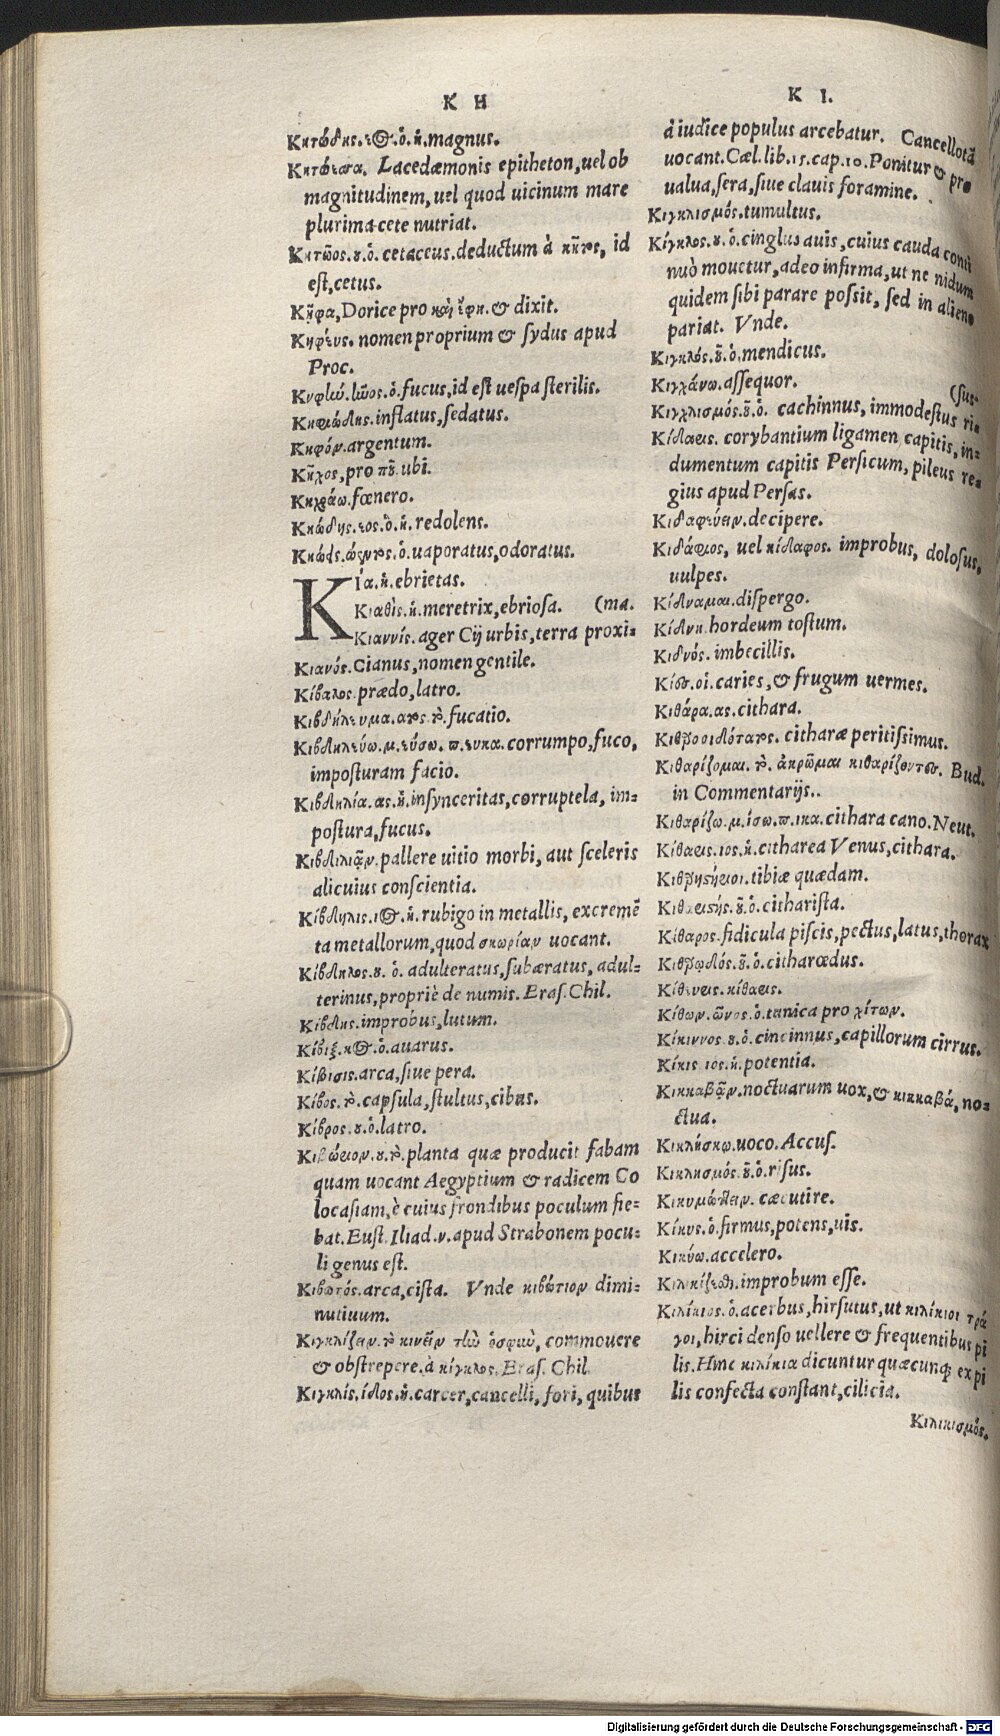 Κ Η
Κητώδης.εος.ὁ.ἡ.magnus.
Κητώεσσα. Lacedæmonis epitheton, uel ob
magnitudinem, uel quod uicinum mare
plurima cete nutriat.
Κητῶος.ου.ὁ. cetaceus. deductum à κῆτος, id
est, cetus.
Κῆφα, Dorice pro καὶ ἔφη. & dixit.
Κηφεύς. nomen proprium & sydus apud
Proc.
Κηφlὼ.lῶος.ὁ. fucus, id est uespa sterilis.
Κηφώδης. inflatus, sedatus.
Κηφόν. argentum.
Κῆχος, pro ποῦ. ubi.
Κηχράω. fœnero.
Κηώδης.εος.ὁ.ἡ. redolens.
Κηώεις.ώεντος.ὁ. uaporatus, odoratus.
Κία.ἡ. ebrietas.
Κιαθὶς.ἡ. meretrix, ebriosa. (ma.
Κιαννίς. ager Cij urbis, terra proxi-
Κιανός. Cianus, nomen gentile.
Κίβαλος. prædo, latro.
Κιβδήλευμα.ατος.τὸ. fucatio.
Κιβδηλεύω.μ.εύσω.π.ευκα. corrumpo, fuco,
imposturam facio.
Κιβδηλία.ας.ἡ. insynceritas, corruptela, im-
postura, fucus.
Κιβδιλιᾷν. pallere uitio morbi, aut sceleris
alicuius conscientia.
Κίβδηλις.ιος.ἡ. rubigo in metallis, excremē
ta metallorum, quod σκωρίαν uocant.
Κίβδηλος.ου. ὁ. adulteratus, subæratus, adul-
terinus, propriè de numis. Eras. Chil.
Κίβδης. improbus, lutum.
Κίβιξ.κος.ὁ. auarus.
Κίβισις. arca, siue pera.
Κίβος.τὸ. capsula, stultus, cibus.
Κίβρος.ου.ὁ. latro.
Κιβώριον.ου.τὸ. planta quæ producit fabam
quam uocant Aegyptium & radicem Co
locasiam, è cuius frondibus poculum fie-
bat. Eust. Iliad.ν. apud Strabonem pocu-
li genus est.
Κιβωτός. arca, cista. Vnde κιβώτιον dimi-
nutiuum.
Κιγκλίζειν.τὸ κινεῖν τlὼ ὀσφυὼ, commouere
& obstrepere. à κίγκλος. Eras. Chil.
Κιγκλίς.ίδος.ἡ. carcer, cancelli, fori, quibus
Κ Ι.
à iudice populus arcebatur. Cancellotā
uocant. Cæl. lib.15. cap.10. Ponitur & pro
ualua, sera, siue clauis foramine.
Κιγκλισμός. tumultus.
Κίγκλος.ου.ὁ. cinglus auis, cuius cauda conti
nuò mouetur, adeo infirma, ut ne nidum
quidem sibi parare possit, sed in alieno
pariat. Vnde.
Κιγκλός.οῦ.ὁ. mendicus.
Κιγχάνω. assequor. (sus.
Κιγχλισμός.οῦ.ὁ. cachinnus, immodestus ri-
Κίδαρις. corybantium ligamen capitis, in-
dumentum capitis Persicum, pileus re-
gius apud Persas.
Κιδαφεύειν. decipere.
Κιδάφιος, uel κίδαφος. improbus, dolosus,
uulpes.
Κίδναμαι. dispergo.
Κίδνη. hordeum tostum.
Κιδνός. imbecillis.
Κίες.οἱ. caries, & frugum uermes.
Κιθάρα.ας. cithara.
Κιθαροοιδότατος. citharæ peritissimus.
Κιθαρίζομαι.τὸ. ἀκρῶμαι κιθαρίζοντος. Bud.
in Commentarijs..
Κιθαρίζω.μ.ίσω.π.ικα. cithara cano. Neut.
Κίθαρις.ιος.ἡ. citharea Venus, cithara.
Κιθαριστήριοι. tibiæ quædam.
Κιθαριστής.οῦ.ὁ. citharista.
Κίθαρος. fidicula piscis, pectus, latus, thorax
Κιθαρῳδός.οῦ.ὁ. citharœdus.
Κίθευεις. κίθαεις.
Κίθων.ῶνος.ὁ. tunica pro χίτων.
Κίκιννος.ου.ὁ. cincinnus, capillorum cirrus.
Κίκις ιος.ἡ. potentia.
Κικκαβᾷν. noctuarum uox, & κικκαβά, no-
ctua.
Κικλήσκω. uoco. Accus.
Κικλησμός.οῦ.ὁ. risus.
Κικυμώττειν. cæcutire.
Κίκυς.ὁ. firmus, potens, uis.
Κικύω. accelero.
Κιλικίζεσθαι. improbum esse.
Κιλίκιος.ὁ. acerbus, hirsutus, ut κιλίκιοι τρά
γοι, hirci denso uellere & frequentibus pi
lis. Hinc κιλίκια dicuntur quæcunq; ex pi
lis confecta constant, cilicia.
Κιλικισμός.
Digitalisierung gefördert durch die Deutsche Forschungsgemeinschaft - DFG